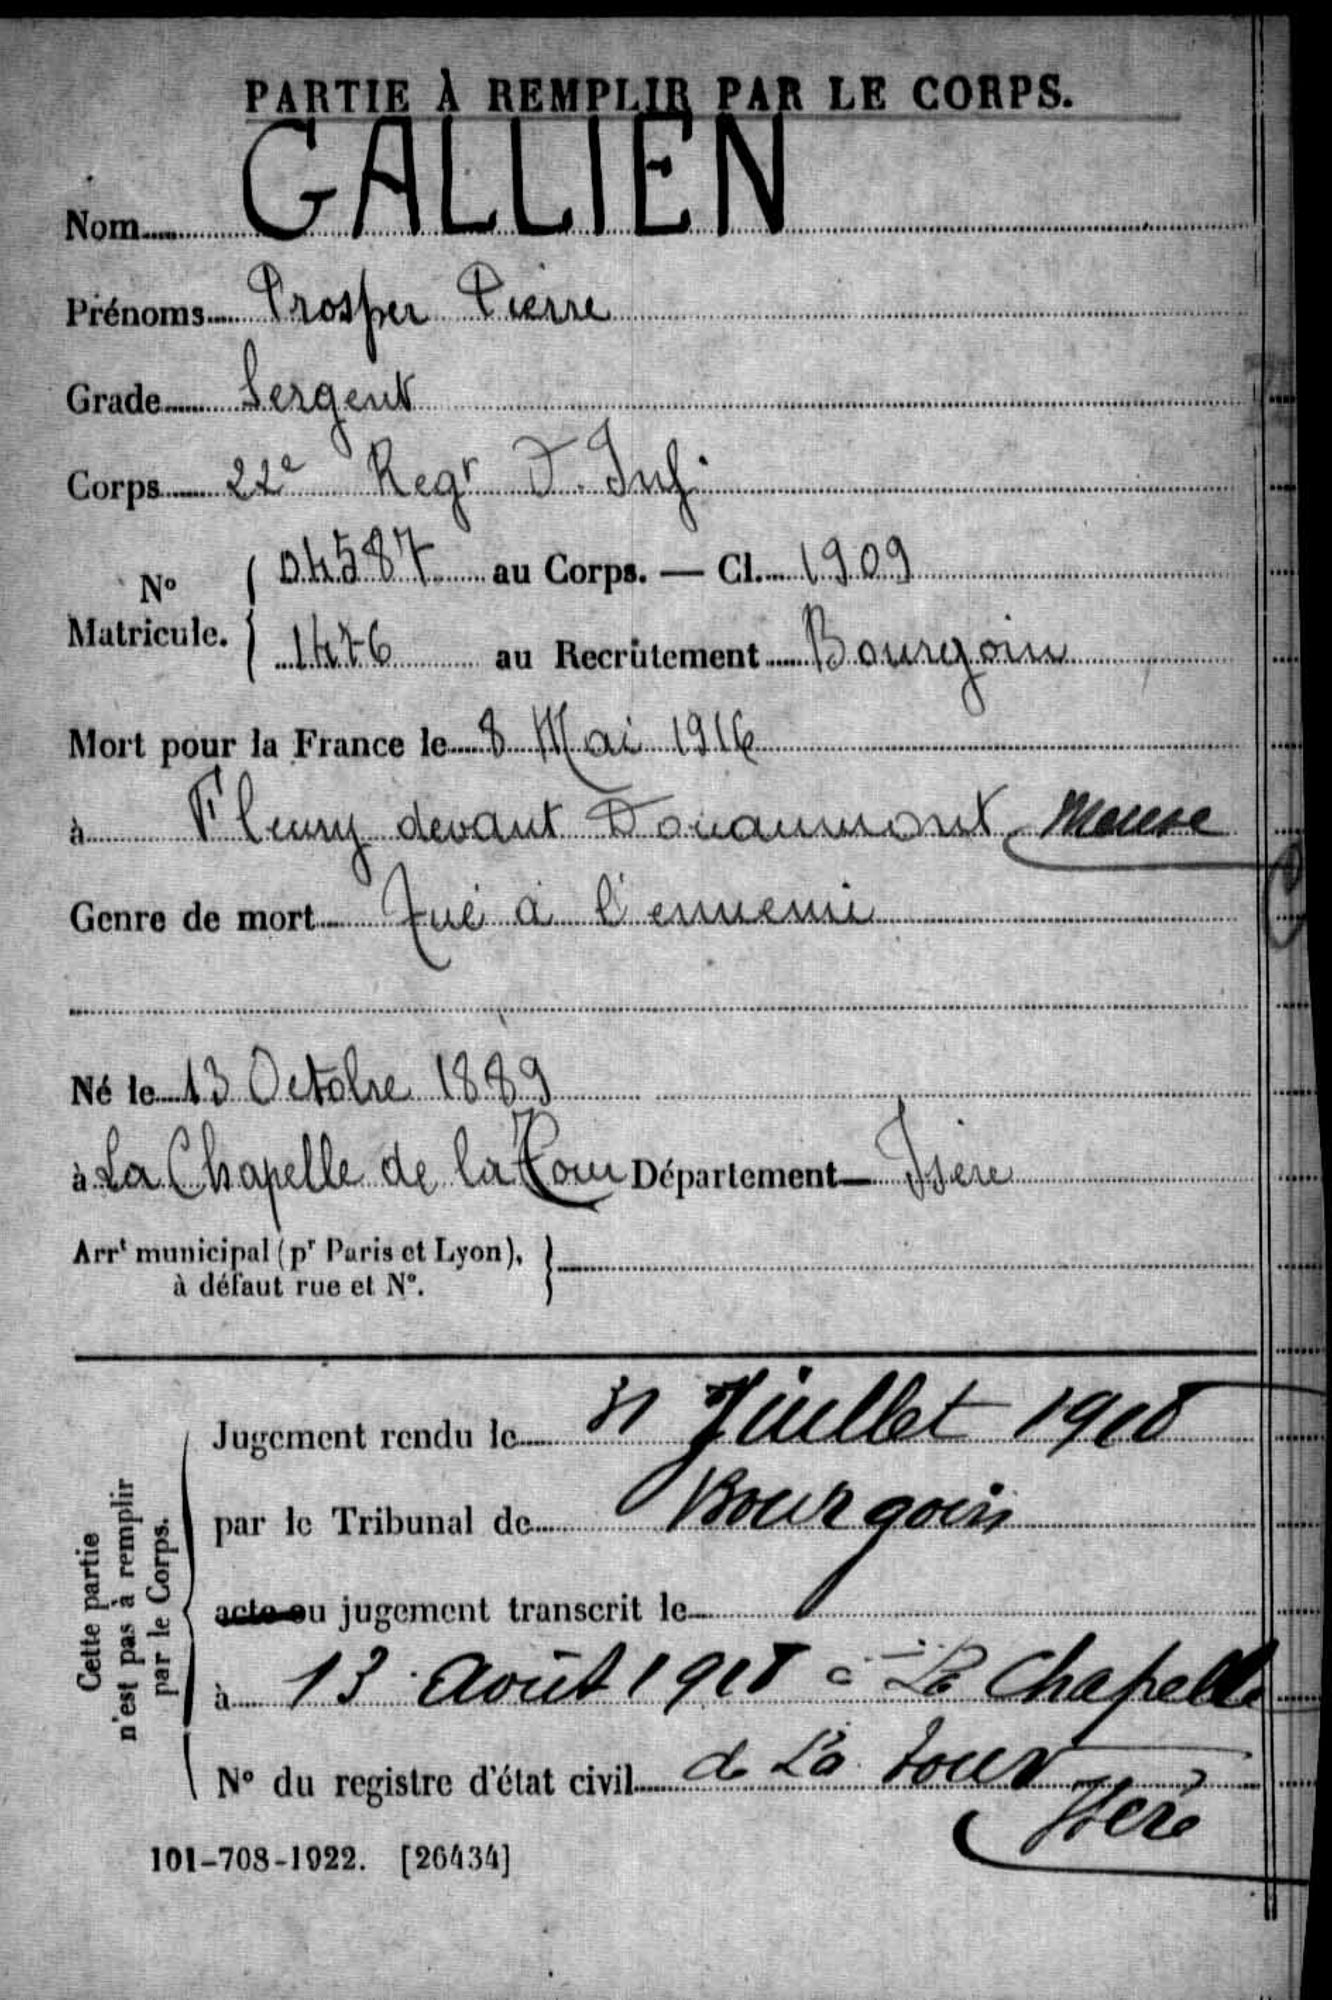 PARTIE À REMPLIR PAR LE CORPS.
Nom GALLIEN
Prénoms Prosper Pierre
Grade Sergent
Corps 22e Regt D. Inf.
No Matricule. 04587 au Corps. — Cl. 1909
1476 au Recrutement Bourgoin
Mort pour la France le 8 Mai 1916
à Fleury devant Douaumont Meuse
Genre de mort Tué à l'ennemi
Né le 13 Octobre 1889
à La Chapelle de la Tour Département Isère
Arrt municipal (pr Paris et Lyon),
à défaut rue et N°.
Cette partie
n'est pas à remplir
par le Corps.
Jugement rendu le 31 Juillet 1918
par le Tribunal de Bourgoin
acte ou jugement transcrit le
à 13 Août 1918 à La Chapelle
N° du registre d'état civil de La Tour
Isère
101-708-1922. [26434]